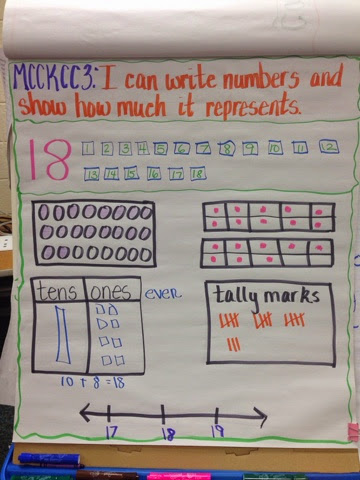 MCCKCC3: I can write numbers and
show how much it represents.
18 1 2 3 4 5 6 7 8 9 10 11 12
13 14 15 16 17 18
tens ones ever
10 + 8 = 18
tally marks
17 18 19